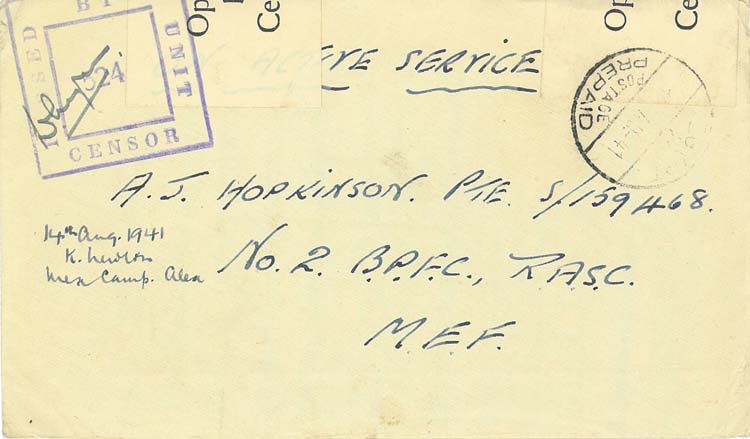 PASSED BY UNIT CENSOR
524
Op
Ce
Op
Ce
ON ACTIVE SERVICE
POSTAGE PREPAID
41
A. J. HOPKINSON. PTE. S/159468.
14th Aug. 1941
K. Newton
Mex Camp. Alex
No. 2. B.P.F.C., R.A.S.C.
M.E.F.